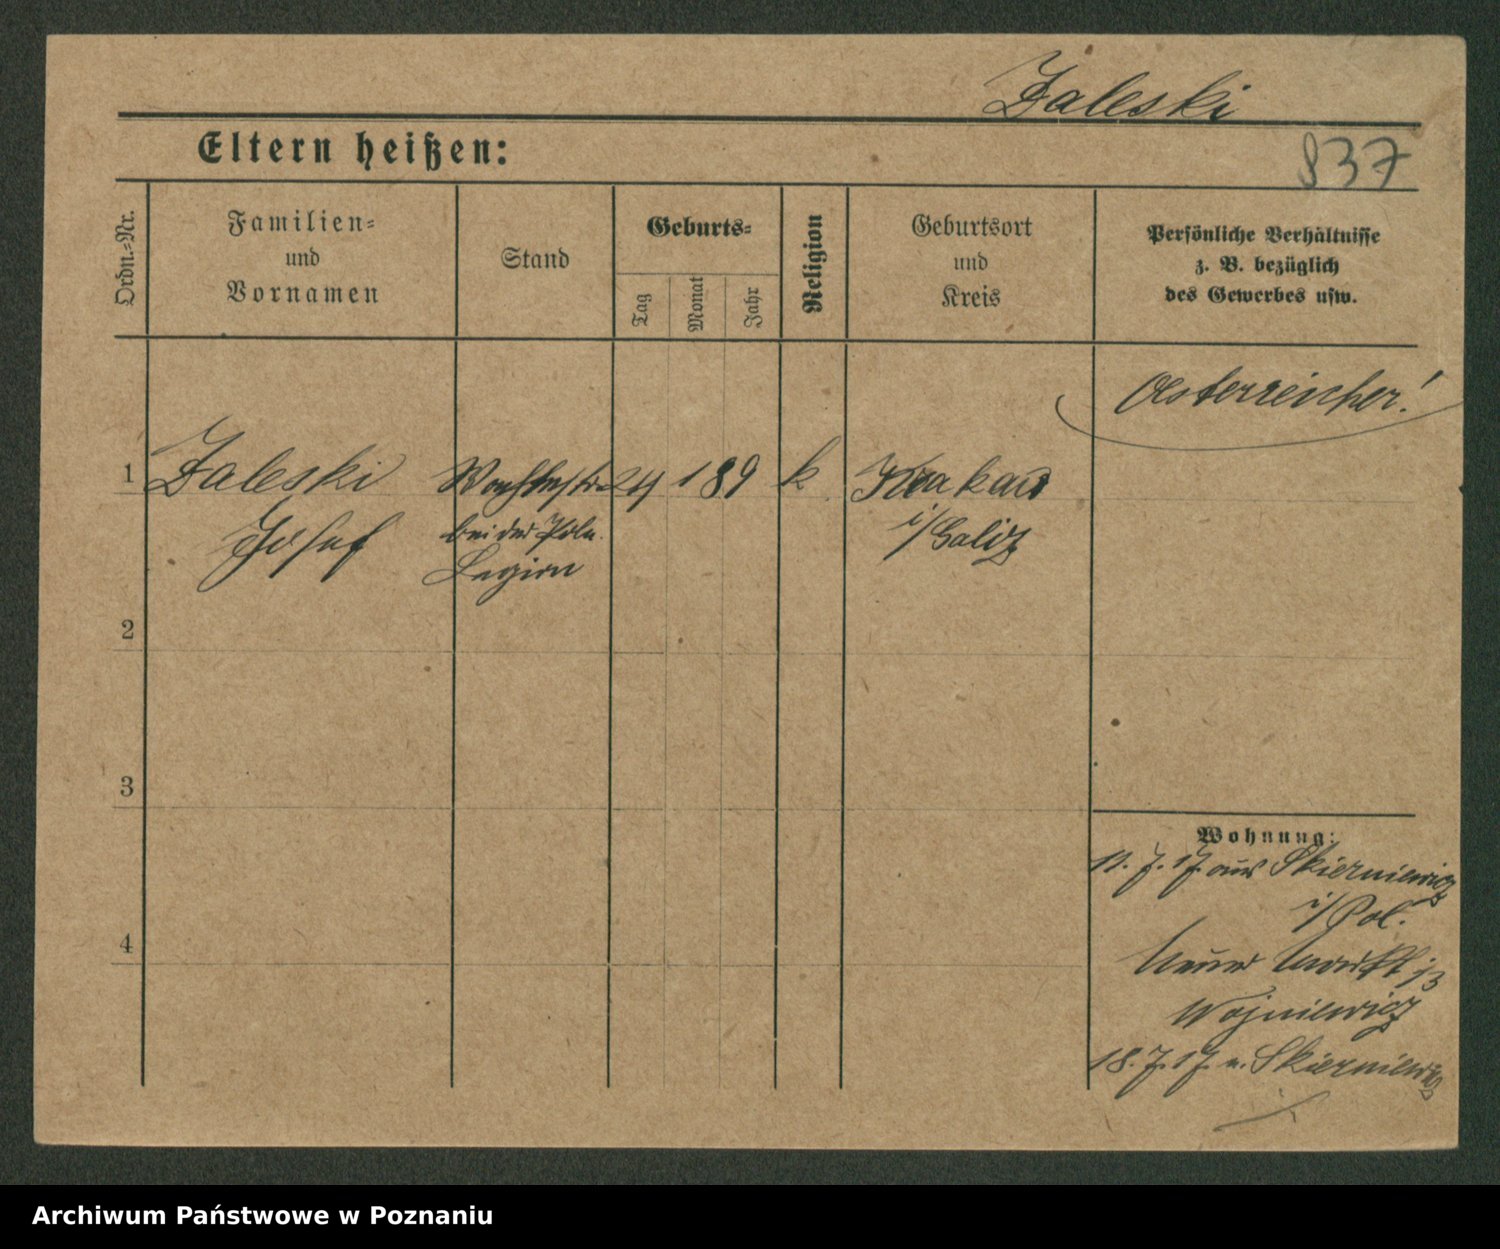 Zaleski
Eltern heißen:
837
Ordn.-Nr.
Familien-
und
Vornamen
Stand
Geburts-
Tag
Monat
Jahr
Religion
Geburtsort
und
Kreis
Persönliche Verhältnisse
z. B. bezüglich
des Gewerbes usw.
Oesterreicher!
1
Zaleski
Josef
Wachtmstr
bei der Poln.
Legion
24 1 89
k
Krakau
i/Galiz
2
3
4
Wohnung:
11. 7. 17. aus Skierniewicz
i/Pol.
Neuer Markt
Wojniewicz
18. 7. 17. n. Skierniewicz
Archiwum Państwowe w Poznaniu